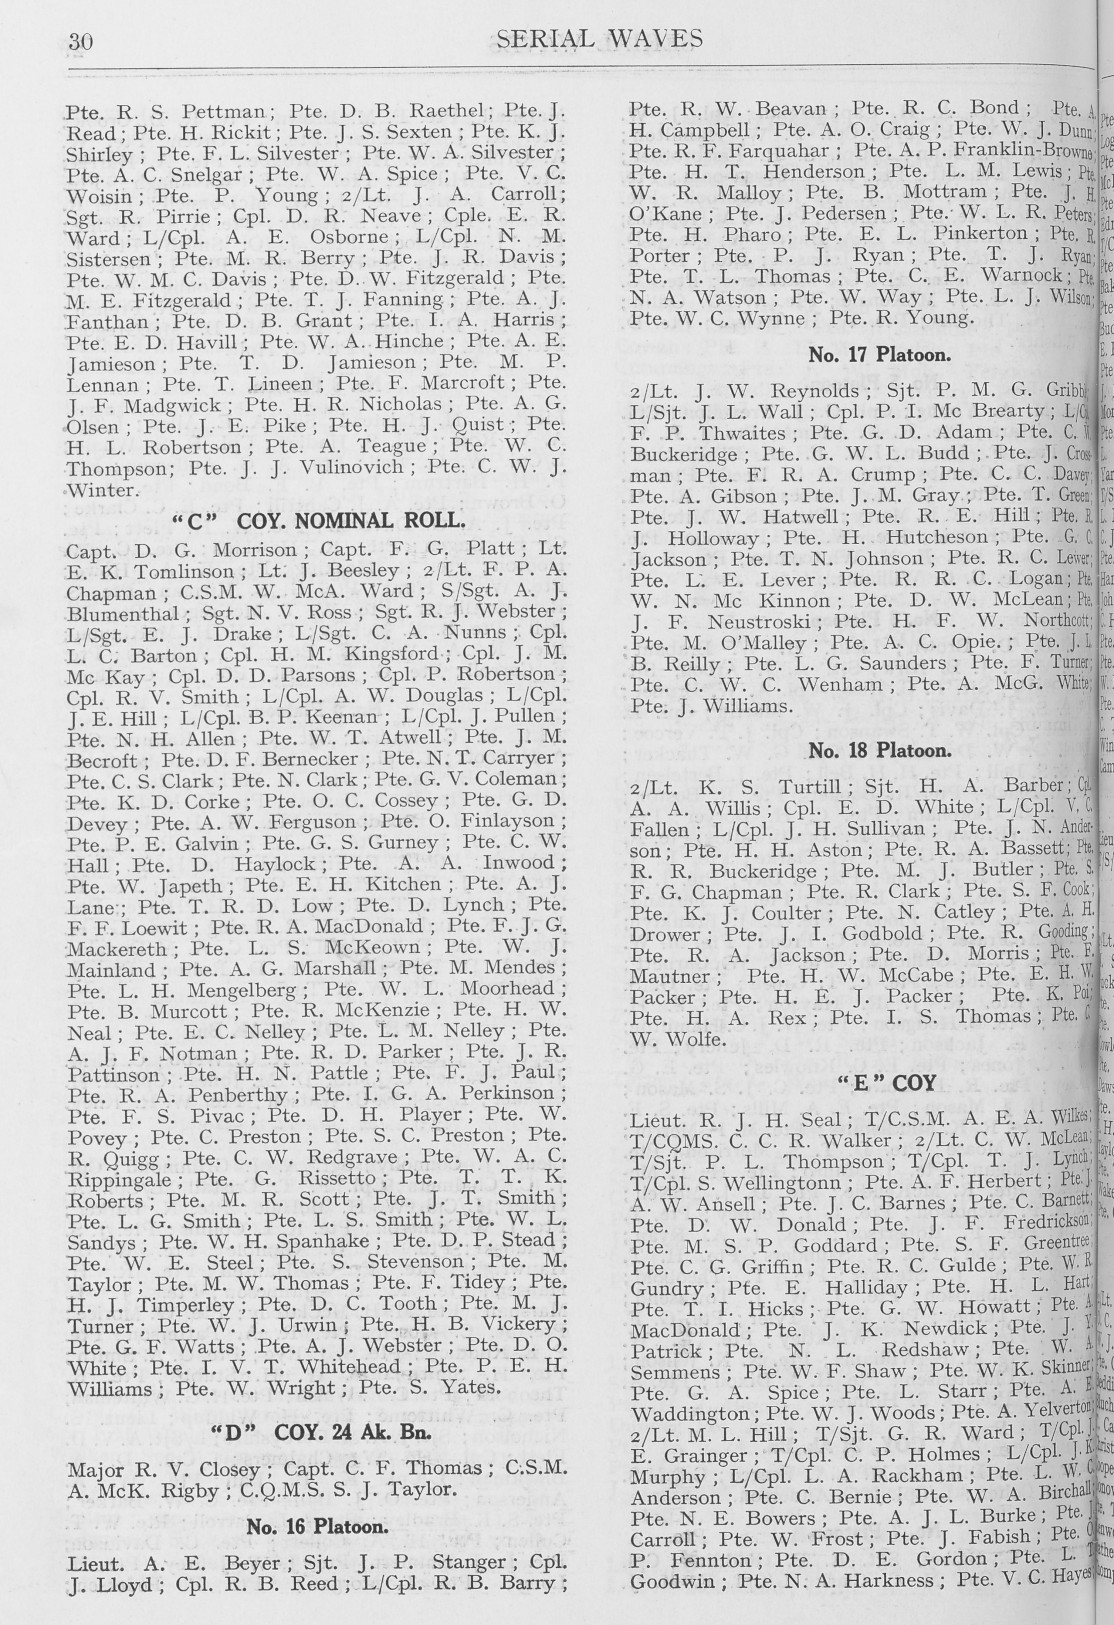 30
SERIAL WAVES
Pte. R. S. Pettman; Pte. D. B. Raethel; Pte. J.
Read; Pte. H. Rickit; Pte. J. S. Sexten; Pte. K. J.
Shirley; Pte. F. L. Silvester; Pte. W. A. Silvester;
Pte. A. C. Snelgar; Pte. W. A. Spice; Pte. V. C.
Woisin; Pte. P. Young; 2/Lt. J. A. Carroll;
Sgt. R. Pirrie; Cpl. D. R. Neave; Cple. E. R.
Ward; L/Cpl. A. E. Osborne; L/Cpl. N. M.
Sistersen; Pte. M. R. Berry; Pte. J. R. Davis;
Pte. W. M. C. Davis; Pte. D. W. Fitzgerald; Pte.
M. E. Fitzgerald; Pte. T. J. Fanning; Pte. A. J.
Fanthan; Pte. D. B. Grant; Pte. I. A. Harris;
Pte. E. D. Havill; Pte. W. A. Hinche; Pte. A. E.
Jamieson; Pte. T. D. Jamieson; Pte. M. P.
Lennan; Pte. T. Lineen; Pte. F. Marcroft; Pte.
J. F. Madgwick; Pte. H. R. Nicholas; Pte. A. G.
Olsen; Pte. J. E. Pike; Pte. H. J. Quist; Pte.
H. L. Robertson; Pte. A. Teague; Pte. W. C.
Thompson; Pte. J. J. Vulinovich; Pte. C. W. J.
Winter.
"C" COY. NOMINAL ROLL.
Capt. D. G. Morrison; Capt. F. G. Platt; Lt.
E. K. Tomlinson; Lt. J. Beesley; 2/Lt. F. P. A.
Chapman; C.S.M. W. McA. Ward; S/Sgt. A. J.
Blumenthal; Sgt. N. V. Ross; Sgt. R. J. Webster;
L/Sgt. E. J. Drake; L/Sgt. C. A. Nunns; Cpl.
L. C. Barton; Cpl. H. M. Kingsford; Cpl. J. M.
Mc Kay; Cpl. D. D. Parsons; Cpl. P. Robertson;
Cpl. R. V. Smith; L/Cpl. A. W. Douglas; L/Cpl.
J. E. Hill; L/Cpl. B. P. Keenan; L/Cpl. J. Pullen;
Pte. N. H. Allen; Pte. W. T. Atwell; Pte. J. M.
Becroft; Pte. D. F. Bernecker; Pte. N. T. Carryer;
Pte. C. S. Clark; Pte. N. Clark; Pte. G. V. Coleman;
Pte. K. D. Corke; Pte. O. C. Cossey; Pte. G. D.
Devey; Pte. A. W. Ferguson; Pte. O. Finlayson;
Pte. P. E. Galvin; Pte. G. S. Gurney; Pte. C. W.
Hall; Pte. D. Haylock; Pte. A. A. Inwood;
Pte. W. Japeth; Pte. E. H. Kitchen; Pte. A. J.
Lane; Pte. T. R. D. Low; Pte. D. Lynch; Pte.
F. F. Loewit; Pte. R. A. MacDonald; Pte. F. J. G.
Mackereth; Pte. L. S. McKeown; Pte. W. J.
Mainland; Pte. A. G. Marshall; Pte. M. Mendes;
Pte. L. H. Mengelberg; Pte. W. L. Moorhead;
Pte. B. Murcott; Pte. R. McKenzie; Pte. H. W.
Neal; Pte. E. C. Nelley; Pte. L. M. Nelley; Pte.
A. J. F. Notman; Pte. R. D. Parker; Pte. J. R.
Pattinson; Pte. H. N. Pattle; Pte. F. J. Paul;
Pte. R. A. Penberthy; Pte. I. G. A. Perkinson;
Pte. F. S. Pivac; Pte. D. H. Player; Pte. W.
Povey; Pte. C. Preston; Pte. S. C. Preston; Pte.
R. Quigg; Pte. C. W. Redgrave; Pte. W. A. C.
Rippingale; Pte. G. Rissetto; Pte. T. T. K.
Roberts; Pte. M. R. Scott; Pte. J. T. Smith;
Pte. L. G. Smith; Pte. L. S. Smith; Pte. W. L.
Sandys; Pte. W. H. Spanhake; Pte. D. P. Stead;
Pte. W. E. Steel; Pte. S. Stevenson; Pte. M.
Taylor; Pte. M. W. Thomas; Pte. F. Tidey; Pte.
H. J. Timperley; Pte. D. C. Tooth; Pte. M. J.
Turner; Pte. W. J. Urwin; Pte. H. B. Vickery;
Pte. G. F. Watts; Pte. A. J. Webster; Pte. D. O.
White; Pte. I. V. T. Whitehead; Pte. P. E. H.
Williams; Pte. W. Wright; Pte. S. Yates.
"D" COY. 24 Ak. Bn.
Major R. V. Closey; Capt. C. F. Thomas; C.S.M.
A. McK. Rigby; C.Q.M.S. S. J. Taylor.
No. 16 Platoon.
Lieut. A. E. Beyer; Sjt. J. P. Stanger; Cpl.
J. Lloyd; Cpl. R. B. Reed; L/Cpl. R. B. Barry;
Pte. R. W. Beavan; Pte. R. C. Bond; Pte. A.
H. Campbell; Pte. A. O. Craig; Pte. W. J. Dunn;
Pte. R. F. Farquahar; Pte. A. P. Franklin-Browne;
Pte. H. T. Henderson; Pte. L. M. Lewis; Pte.
W. R. Malloy; Pte. B. Mottram; Pte. J. H.
O'Kane; Pte. J. Pedersen; Pte. W. L. R. Peters;
Pte. H. Pharo; Pte. E. L. Pinkerton; Pte. R.
Porter; Pte. P. J. Ryan; Pte. T. J. Ryan;
Pte. T. L. Thomas; Pte. C. E. Warnock; Pte.
N. A. Watson; Pte. W. Way; Pte. L. J. Wilson;
Pte. W. C. Wynne; Pte. R. Young.
No. 17 Platoon.
2/Lt. J. W. Reynolds; Sjt. P. M. G. Gribb
L/Sjt. J. L. Wall; Cpl. P. I. Mc Brearty; L/C
F. P. Thwaites; Pte. G. D. Adam; Pte. C. W.
Buckeridge; Pte. G. W. L. Budd; Pte. J. Cross-
man; Pte. F. R. A. Crump; Pte. C. C. Davey;
Pte. A. Gibson; Pte. J. M. Gray; Pte. T. Green;
Pte. J. W. Hatwell; Pte. R. E. Hill; Pte. R.
J. Holloway; Pte. H. Hutcheson; Pte. G. C.
Jackson; Pte. T. N. Johnson; Pte. R. C. Lewer;
Pte. L. E. Lever; Pte. R. R. C. Logan; Pte.
W. N. Mc Kinnon; Pte. D. W. McLean; Pte.
J. F. Neustroski; Pte. H. F. W. Northcott;
Pte. M. O'Malley; Pte. A. C. Opie.; Pte. J. L.
B. Reilly; Pte. L. G. Saunders; Pte. F. Turner;
Pte. C. W. C. Wenham; Pte. A. McG. White;
Pte. J. Williams.
No. 18 Platoon.
2/Lt. K. S. Turtill; Sjt. H. A. Barber; Cpl.
A. A. Willis; Cpl. E. D. White; L/Cpl. V. C.
Fallen; L/Cpl. J. H. Sullivan; Pte. J. N. Ander-
son; Pte. H. H. Aston; Pte. R. A. Bassett; Pte.
R. R. Buckeridge; Pte. M. J. Butler; Pte. S.
F. G. Chapman; Pte. R. Clark; Pte. S. F. Cook;
Pte. K. J. Coulter; Pte. N. Catley; Pte. A. H.
Drower; Pte. J. I. Godbold; Pte. R. Gooding;
Pte. R. A. Jackson; Pte. D. Morris; Pte. F.
Mautner; Pte. H. W. McCabe; Pte. E. H. W.
Packer; Pte. H. E. J. Packer; Pte. K. Poi;
Pte. H. A. Rex; Pte. I. S. Thomas; Pte. C.
W. Wolfe.
"E" COY
Lieut. R. J. H. Seal; T/C.S.M. A. E. A. Wilkes;
T/CQMS. C. C. R. Walker; 2/Lt. C. W. McLean;
T/Sjt. P. L. Thompson; T/Cpl. T. J. Lynch;
T/Cpl. S. Wellingtonn; Pte. A. F. Herbert; Pte. J.
A. W. Ansell; Pte. J. C. Barnes; Pte. C. Barnett;
Pte. D. W. Donald; Pte. J. F. Fredrickson;
Pte. M. S. P. Goddard; Pte. S. F. Greentree;
Pte. C. G. Griffin; Pte. R. C. Gulde; Pte. W. R.
Gundry; Pte. E. Halliday; Pte. H. L. Hart;
Pte. T. I. Hicks; Pte. G. W. Howatt; Pte. A.
MacDonald; Pte. J. K. Newdick; Pte. J. Y.
Patrick; Pte. N. L. Redshaw; Pte. W. A.
Semmens; Pte. W. F. Shaw; Pte. W. K. Skinner;
Pte. G. A. Spice; Pte. L. Starr; Pte. A. E.
Waddington; Pte. W. J. Woods; Pte. A. Yelverton;
2/Lt. M. L. Hill; T/Sjt. G. R. Ward; T/Cpl. J.
E. Grainger; T/Cpl. C. P. Holmes; L/Cpl. J. K.
Murphy; L/Cpl. L. A. Rackham; Pte. L. W. C.
Anderson; Pte. C. Bernie; Pte. W. A. Birchall;
Pte. N. E. Bowers; Pte. A. J. L. Burke; Pte. J.
Carroll; Pte. W. Frost; Pte. J. Fabish; Pte. O.
P. Fennton; Pte. D. E. Gordon; Pte. L. T.
Goodwin; Pte. N. A. Harkness; Pte. V. C. Hayes